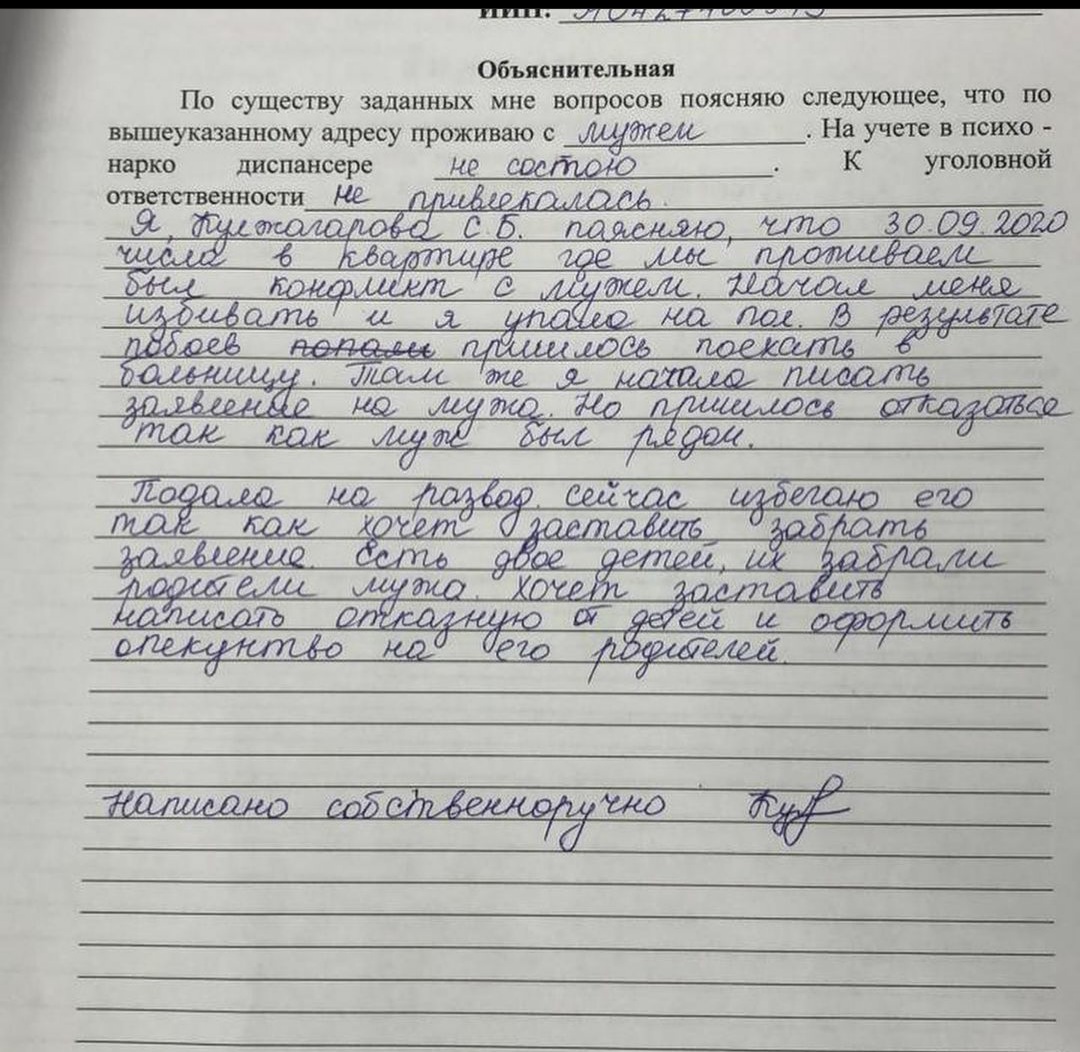 ИИН:
Объяснительная
По существу заданных мне вопросов поясняю следующее, что по
вышеуказанному адресу проживаю с мужем. На учете в психо -
нарко диспансере не состою. К уголовной
ответственности не привлекалась.
Я, Кулжагарова С.Б. паясняю, что 30.09.2020
числа в квартире где мы проживаем
был конфликт с мужем. Начал меня
избивать и я упала на пол. В результате
побоев пришлось поехать в
больницу. Там же я начала писать
заявление на мужа. Но пришлось отказаться
так как муж был рядом.
Подала на развод. сейчас избегаю его
так как хочет заставить забрать
заявление. Есть двое детей, их забрали
родители мужа. Хочет заставить
написать отказную от детей и оформить
опекунтво на его родителей.
Написано собственноручно